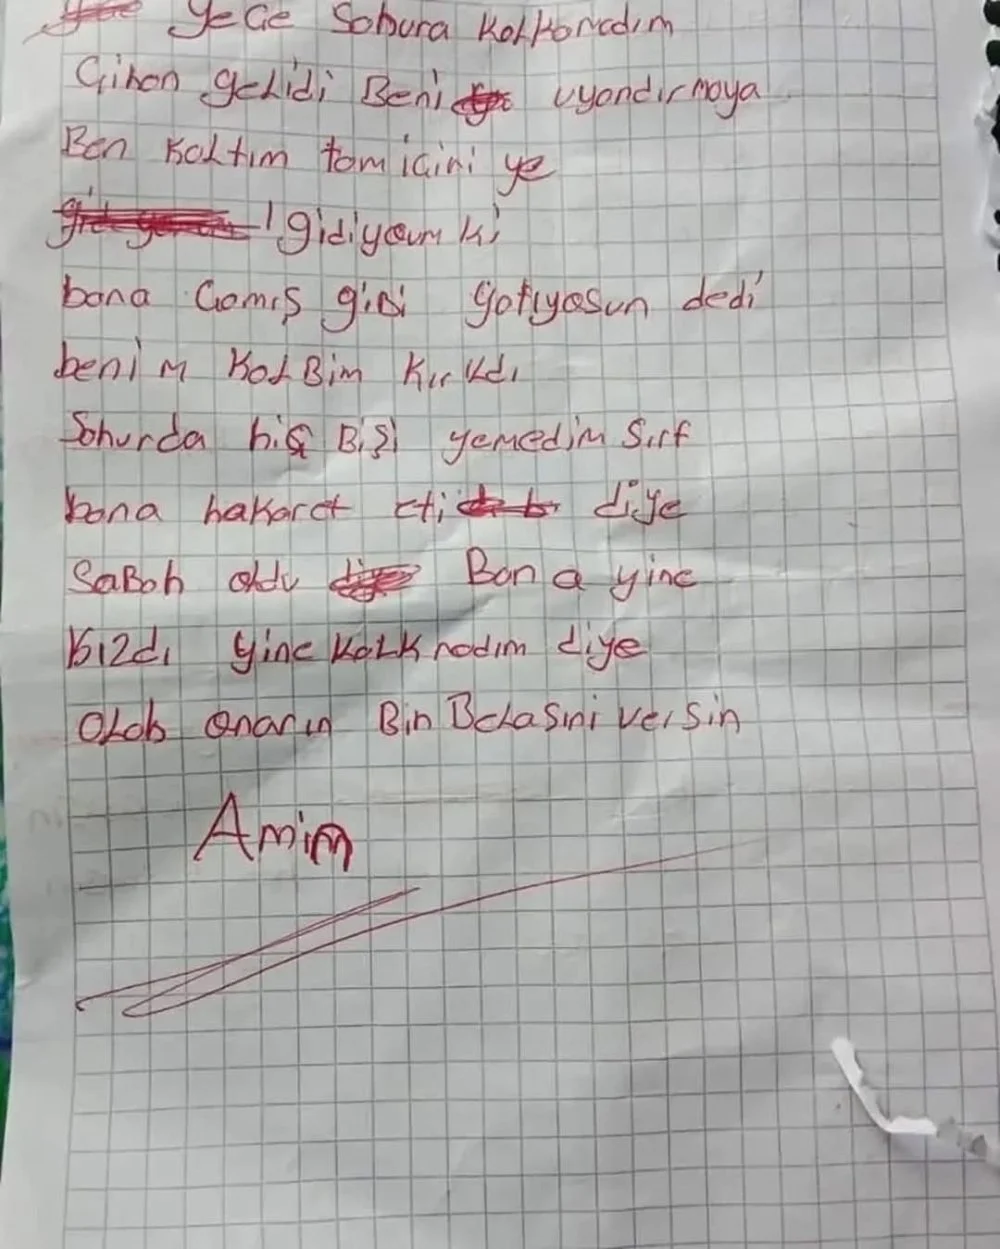 yece Sohura Kalkamadım
Cihan gelidi Beni uyandırmaya
Ben Kaltım tam içini ye
gidiyoum ki
bana Camış gibi yatıyasun dedi
benim KalBim Kırıldı
Sahurda hiç Bişi yemedim Sırf
bana hakaret eti diye
SaBah oldu Bana yine
Kızdı yine Kalkmadım diye
Olah onarın Bin Belasini versin
Amim